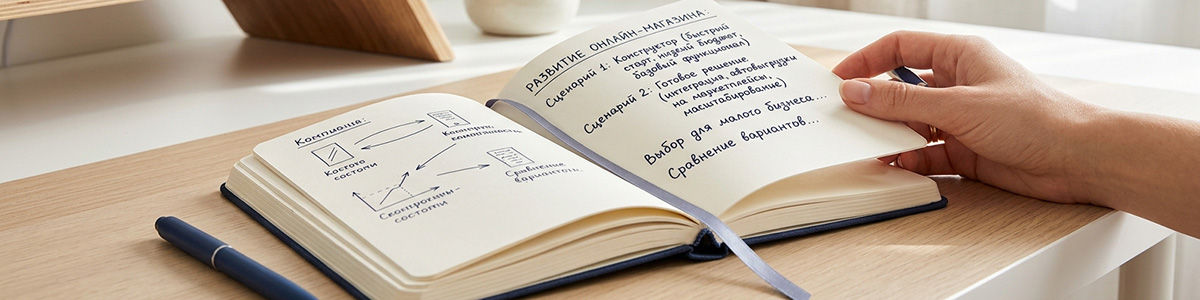 Компашія:
Костого
состоти
Сравнение
вариантов...
Скотрочмы-
состоти
РАЗВИТИЕ ОНЛАЙН-МАГАЗИНА:
Сценарий 1: Конструктор (быстрый
старт, низкий бюджет,
базовый функционал)
Сценарий 2: Готовое решение
(интеграция, автовыгрузки
на маркетплейсы,
масштабирование)
Выбор для малого бизнеса...
Сравнение вариантов...